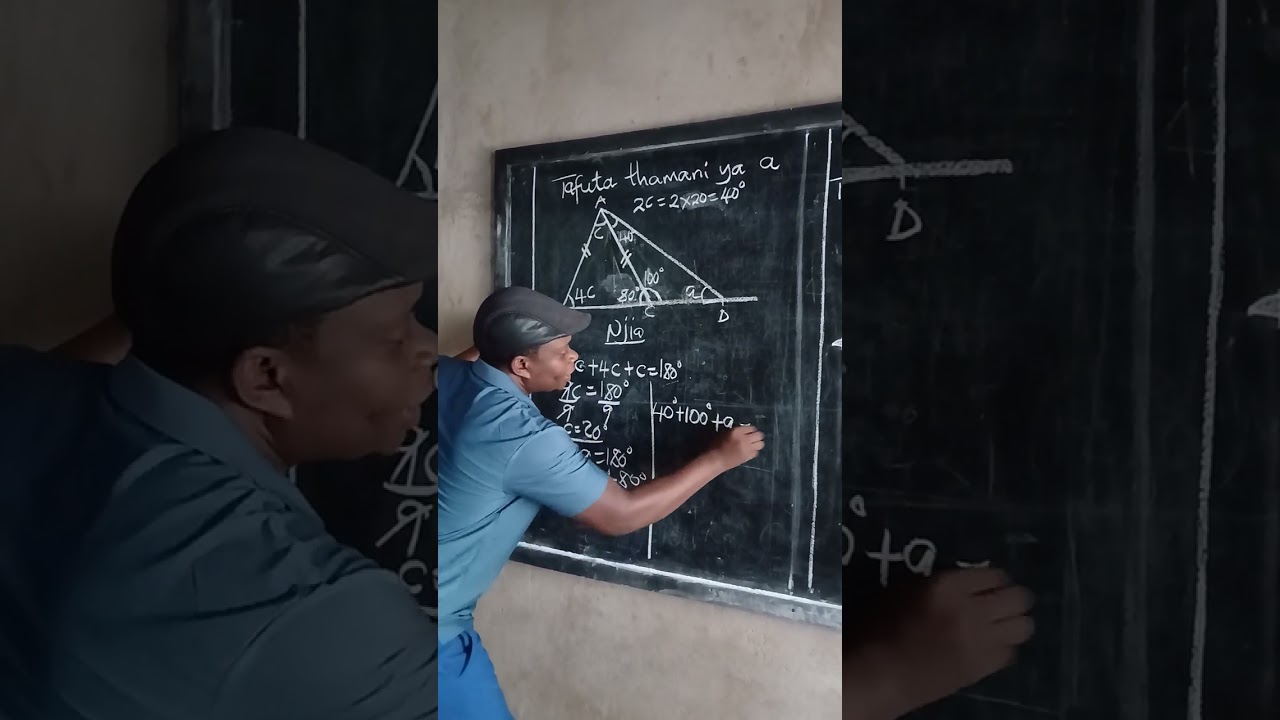 Tafuta thamani ya a
2C = 2×20 = 40°
A
C 40
100°
4C 80° a
C D
Njia
C+4C+C=180°
9C = 180°
9 9
C=20°
=180°
80°
40°+100°+a =
D
+a